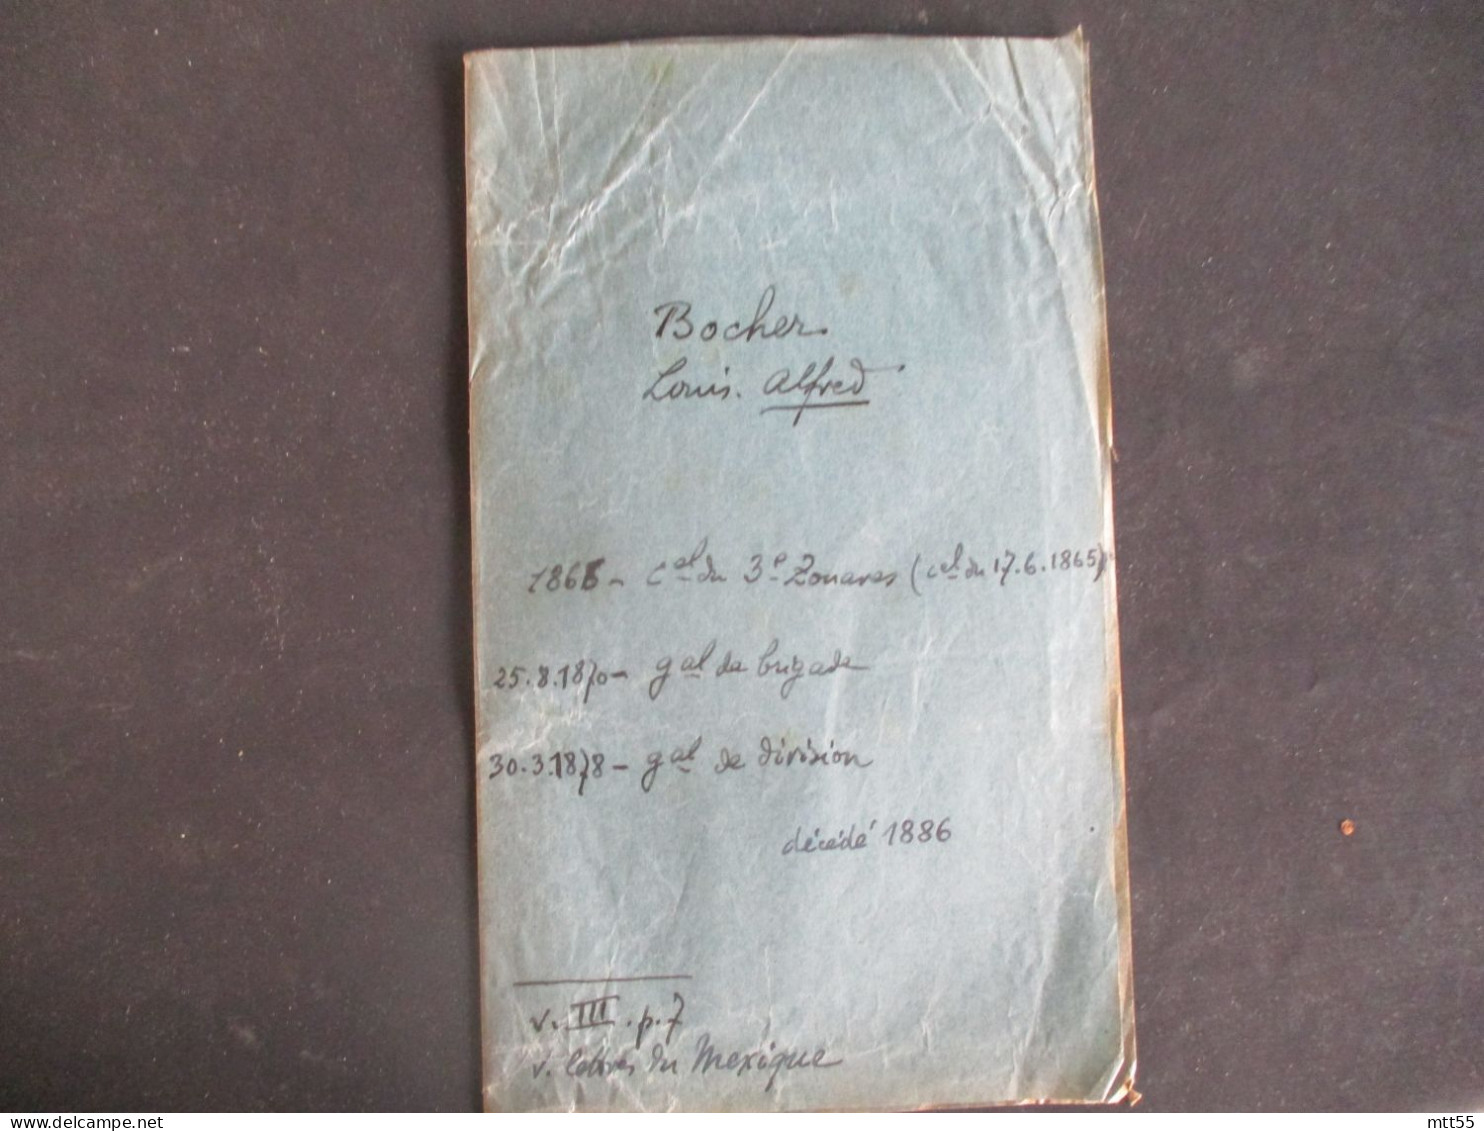 Bocher.
Louis. Alfred
1866 - cel du 3e Zouaves (cel du 17.6.1865)
25.8.1870 - gal de brigade
30.3.1878 - gal de division
décédé 1886
v. III. p. 7
v. lettres du Mexique
mtt55